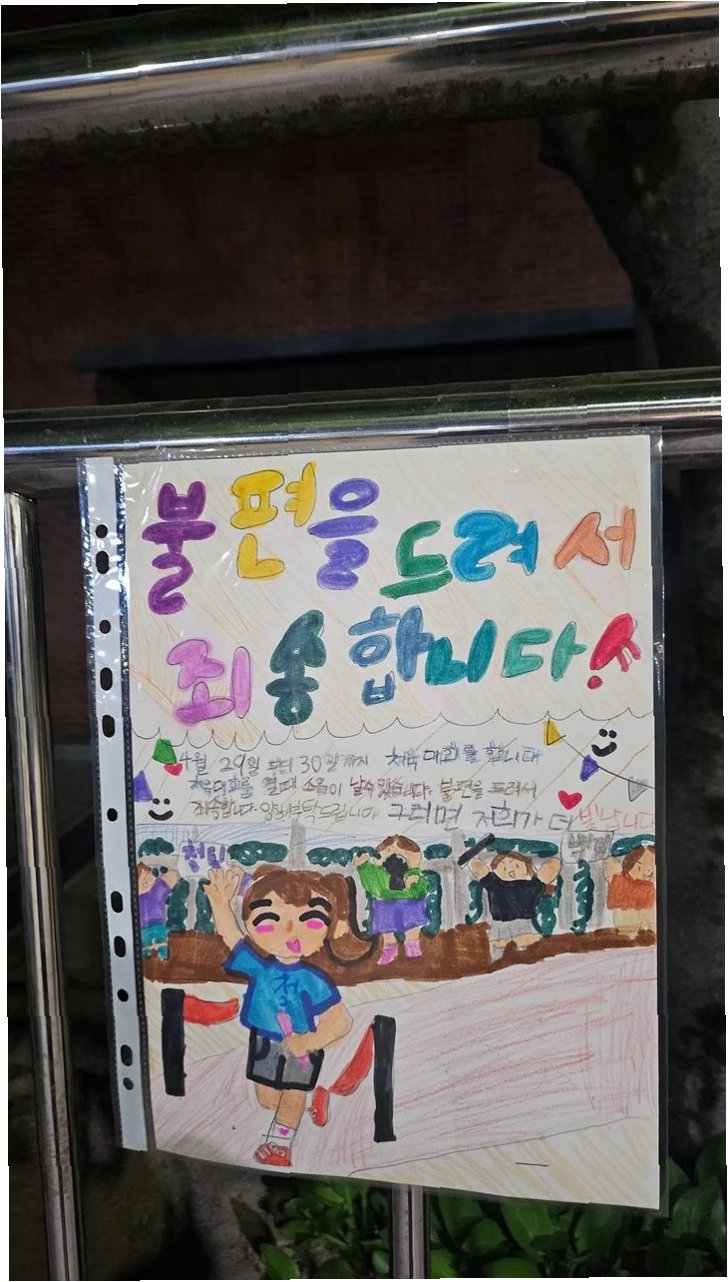 불편을 드려서
죄송합니다!
4월 29일 부터 30일까지 체육대회를 합니다
체육대회를 열때 소음이 날수있습니다. 불편을 드려서
죄송합니다. 양해부탁드립니다 그러면 저희가 더 빛납니다
청팀
청